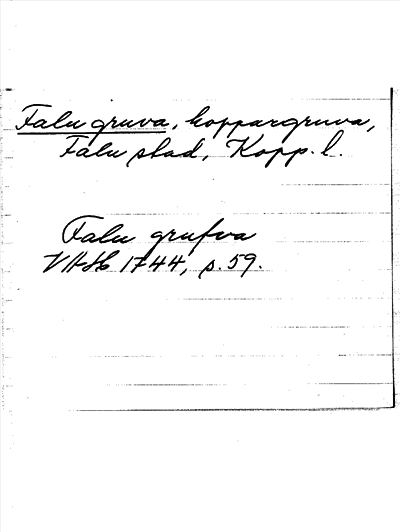 Falu gruva, koppargruva,
Falu stad, Kopp. l.
Falu grufva
VAH 1744, s. 59.